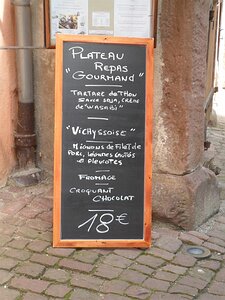 PLATEAU
REPAS
"GOURMAND"
TARTARE de THON
SAUCE SOJA, CRÈME
de "WASABI"
"VICHYSSOISE"
MIGNONS de FILET de
PORC, LÉGUMES
& PLEUROTES
FROMAGE
CROQUANT
CHOCOLAT
18€